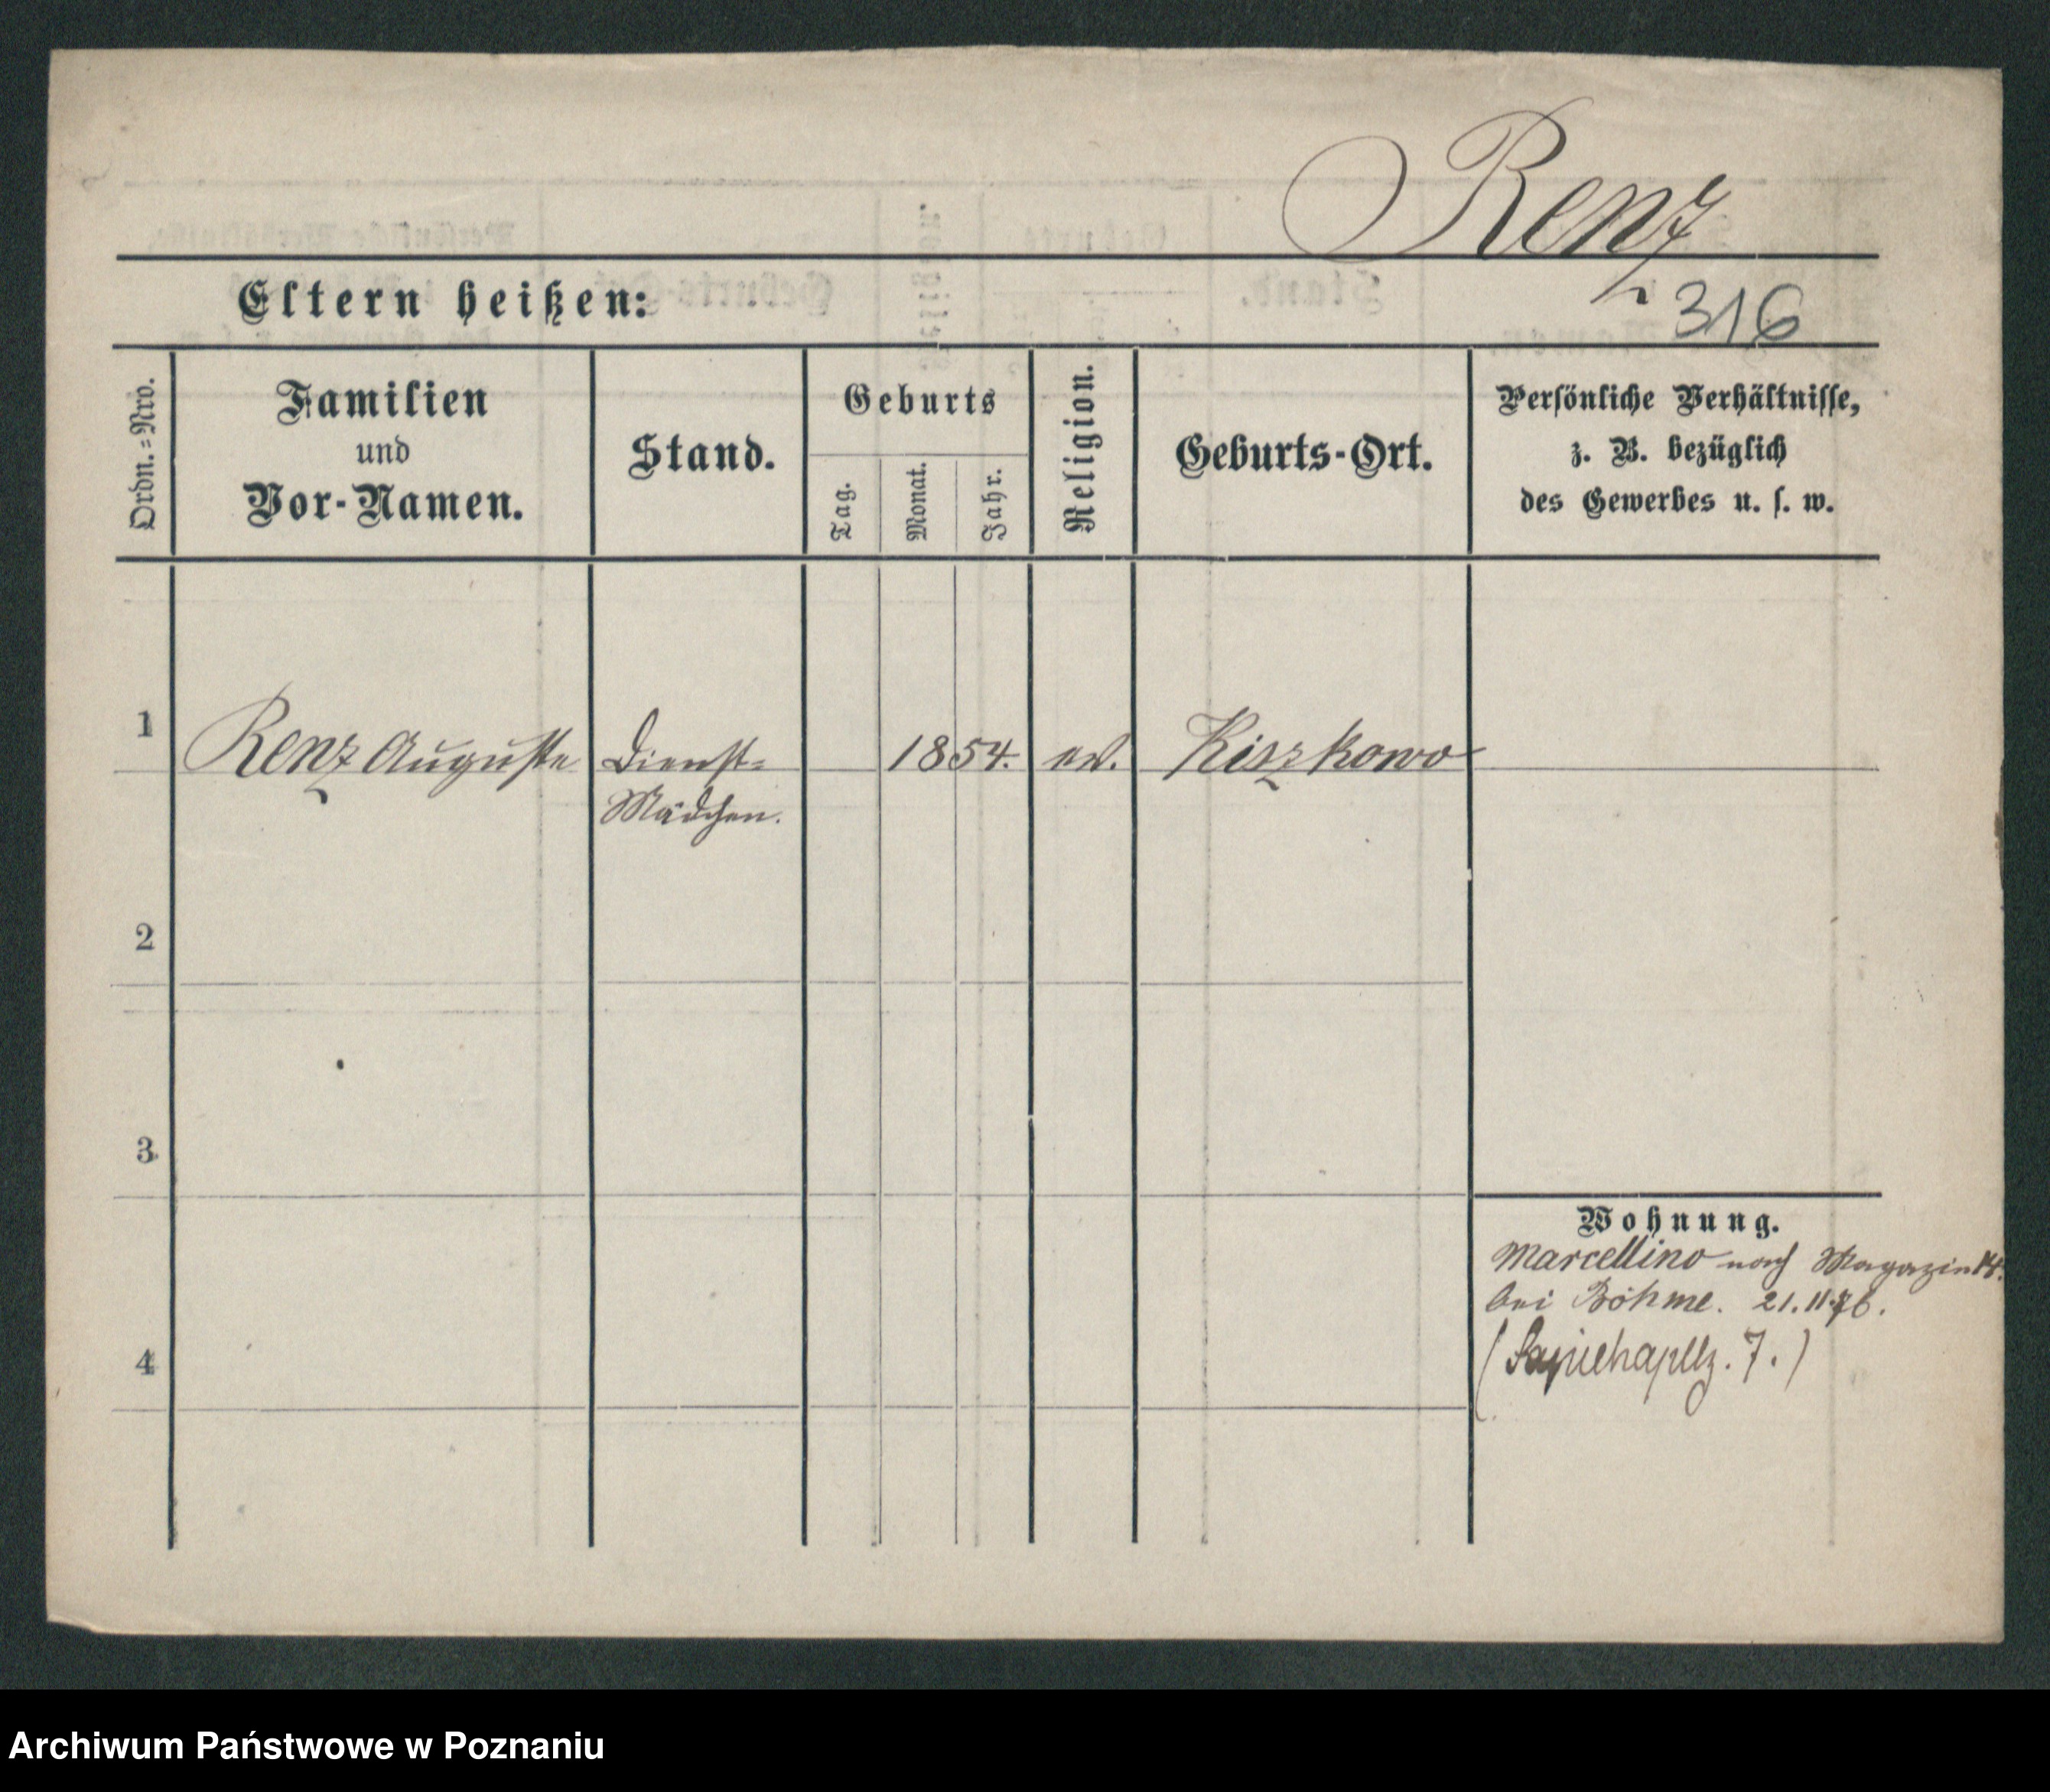 Renz
Eltern heißen:
316
Ordn.=Nro.
Familien
und
Vor-Namen.
Stand.
Geburts
Tag.
Monat.
Jahr.
Religion.
Geburts-Ort.
Persönliche Verhältnisse,
z. B. bezüglich
des Gewerbes u. s. w.
1
Renz Auguste
Dienst=
Mädchen.
1854.
ev.
Kiszkowo
2
3
4
Wohnung.
Marcellino nach Magazin
bei Böhme. 21.11.76.
(Sapiehapltz. 7.)
Archiwum Państwowe w Poznaniu